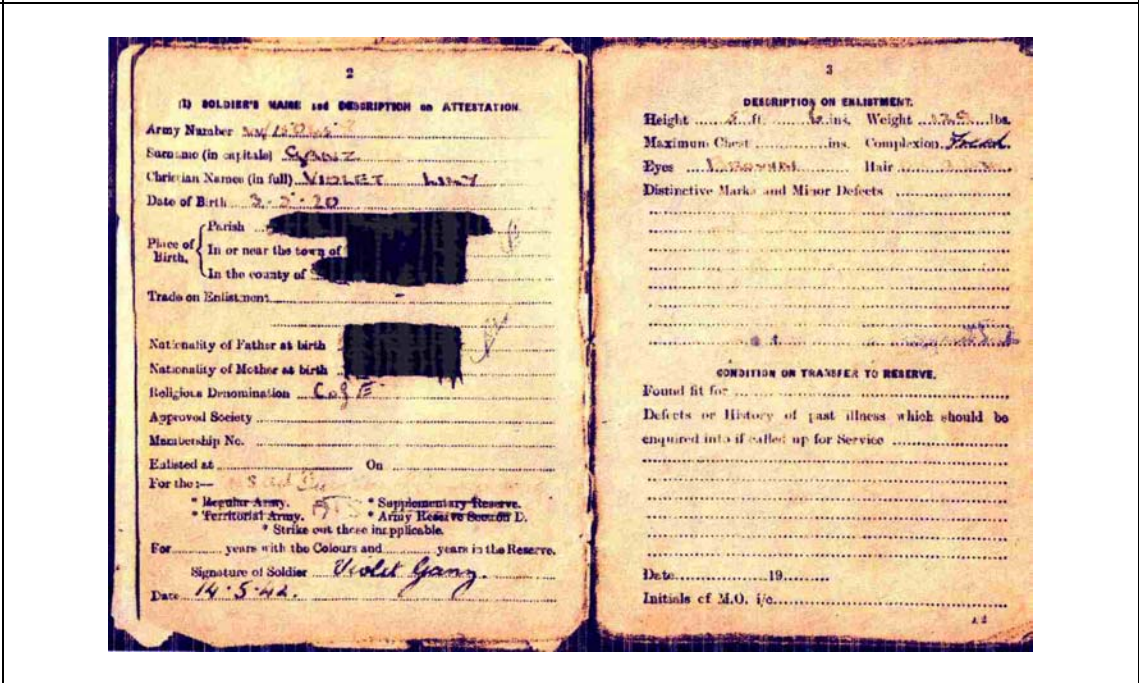 2
(1) SOLDIER'S NAME and DESCRIPTION on ATTESTATION.
Army Number
Surname (in capitals) GANZ
Christian Names (in full) VIOLET LILY
Date of Birth 3-5-20
Place of Birth.
Parish
In or near the town of
In the county of
Trade on Enlistment
Nationality of Father at birth
Nationality of Mother at birth
Religious Denomination C of E
Approved Society
Membership No.
Enlisted at On
For the :—
* Regular Army. ATS * Supplementary Reserve.
* Territorial Army. * Army Reserve Section D.
* Strike out those inapplicable.
For years with the Colours and years in the Reserve.
Signature of Soldier Violet Ganz.
Date 14.5.42.
3
DESCRIPTION ON ENLISTMENT.
Height 5 ft. 6 ins. Weight lbs.
Maximum Chest ins. Complexion Fresh.
Eyes BROWN Hair
Distinctive Marks and Minor Defects
CONDITION ON TRANSFER TO RESERVE.
Found fit for
Defects or History of past illness which should be
enquired into if called up for Service
Date 19
Initials of M.O. i/c